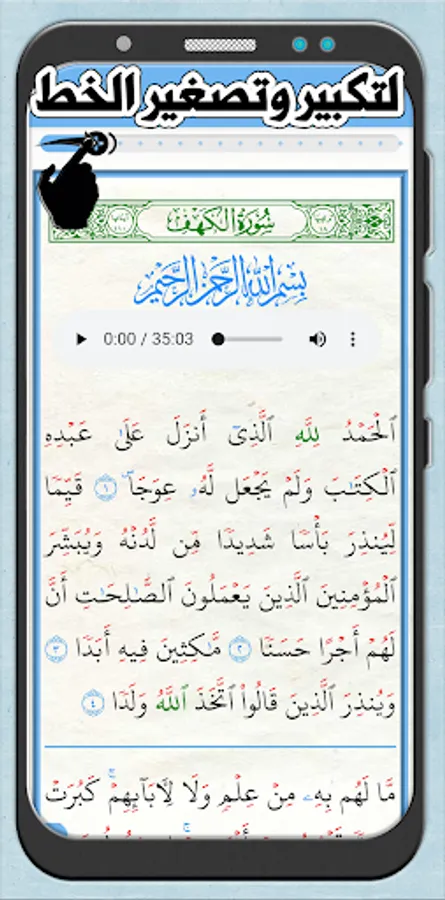 لتكبير وتصغير الخط
سُورَةُ الكَهْفِ
بِسْمِ اللَّهِ الرَّحْمَنِ الرَّحِيمِ
0:00 / 35:03
ٱلْحَمْدُ لِلَّهِ ٱلَّذِىٓ أَنزَلَ عَلَىٰ عَبْدِهِ
ٱلْكِتَـٰبَ وَلَمْ يَجْعَل لَّهُۥ عِوَجَاۜ ١ قَيِّمًا
لِّيُنذِرَ بَأْسًا شَدِيدًا مِّن لَّدُنْهُ وَيُبَشِّرَ
ٱلْمُؤْمِنِينَ ٱلَّذِينَ يَعْمَلُونَ ٱلصَّـٰلِحَـٰتِ أَنَّ
لَهُمْ أَجْرًا حَسَنًا ٢ مَّـٰكِثِينَ فِيهِ أَبَدًا ٣
وَيُنذِرَ ٱلَّذِينَ قَالُوا۟ ٱتَّخَذَ ٱللَّهُ وَلَدًا ٤
مَّا لَهُم بِهِۦ مِنْ عِلْمٍ وَلَا لِـَٔابَآئِهِمْ ۚ كَبُرَتْ